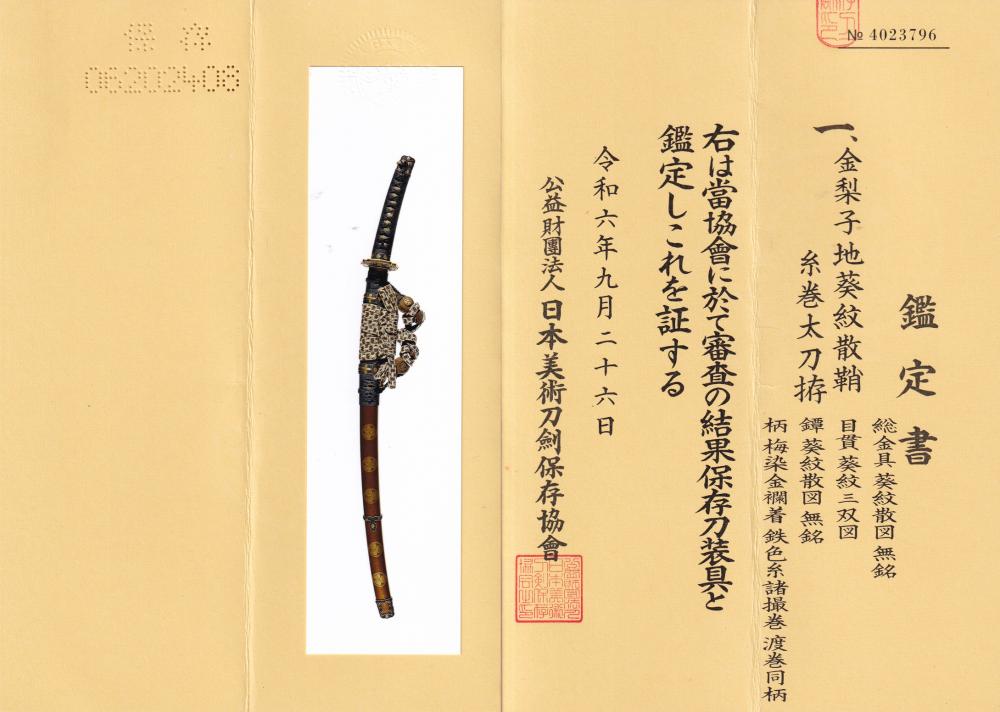 № 4023796
鑑定書
一、金梨子地葵紋散鞘
糸巻太刀拵
総金具 葵紋散図 無銘
目貫 葵紋三双図
鐔 葵紋散図 無銘
柄 梅染金襴着 鉄色糸諸撮巻 渡巻同柄
右は當協會に於て審査の結果保存刀装具と
鑑定しこれを証する
令和六年九月二十六日
公益財團法人 日本美術刀劍保存協會
保存
06202408